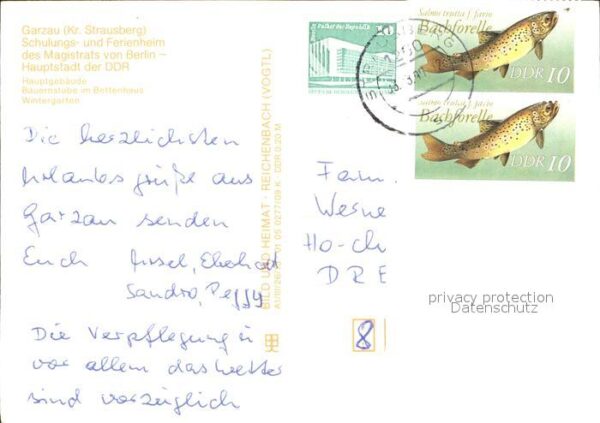 Garzau (Kr. Strausberg)
Schulungs- und Ferienheim
des Magistrats von Berlin –
Hauptstadt der DDR
Hauptgebäude
Bauernstube im Bettenhaus
Wintergarten
Die herzlichsten
Urlaubsgrüße aus
Garzau senden
Euch Ursel, Eberhard
Sandro, Peggy
Die Verpflegung u
vor allem das Wetter
sind vorzüglich
BILD UND HEIMAT · REICHENBACH (VOGTL)
Palast der Republik
Salmo trutta f. fario
Bachforelle
DDR 10
Salmo trutta f. fario
Bachforelle
DDR 10
Fam.
Werne
Ho-ch
DRE
8
privacy protection
Datenschutz